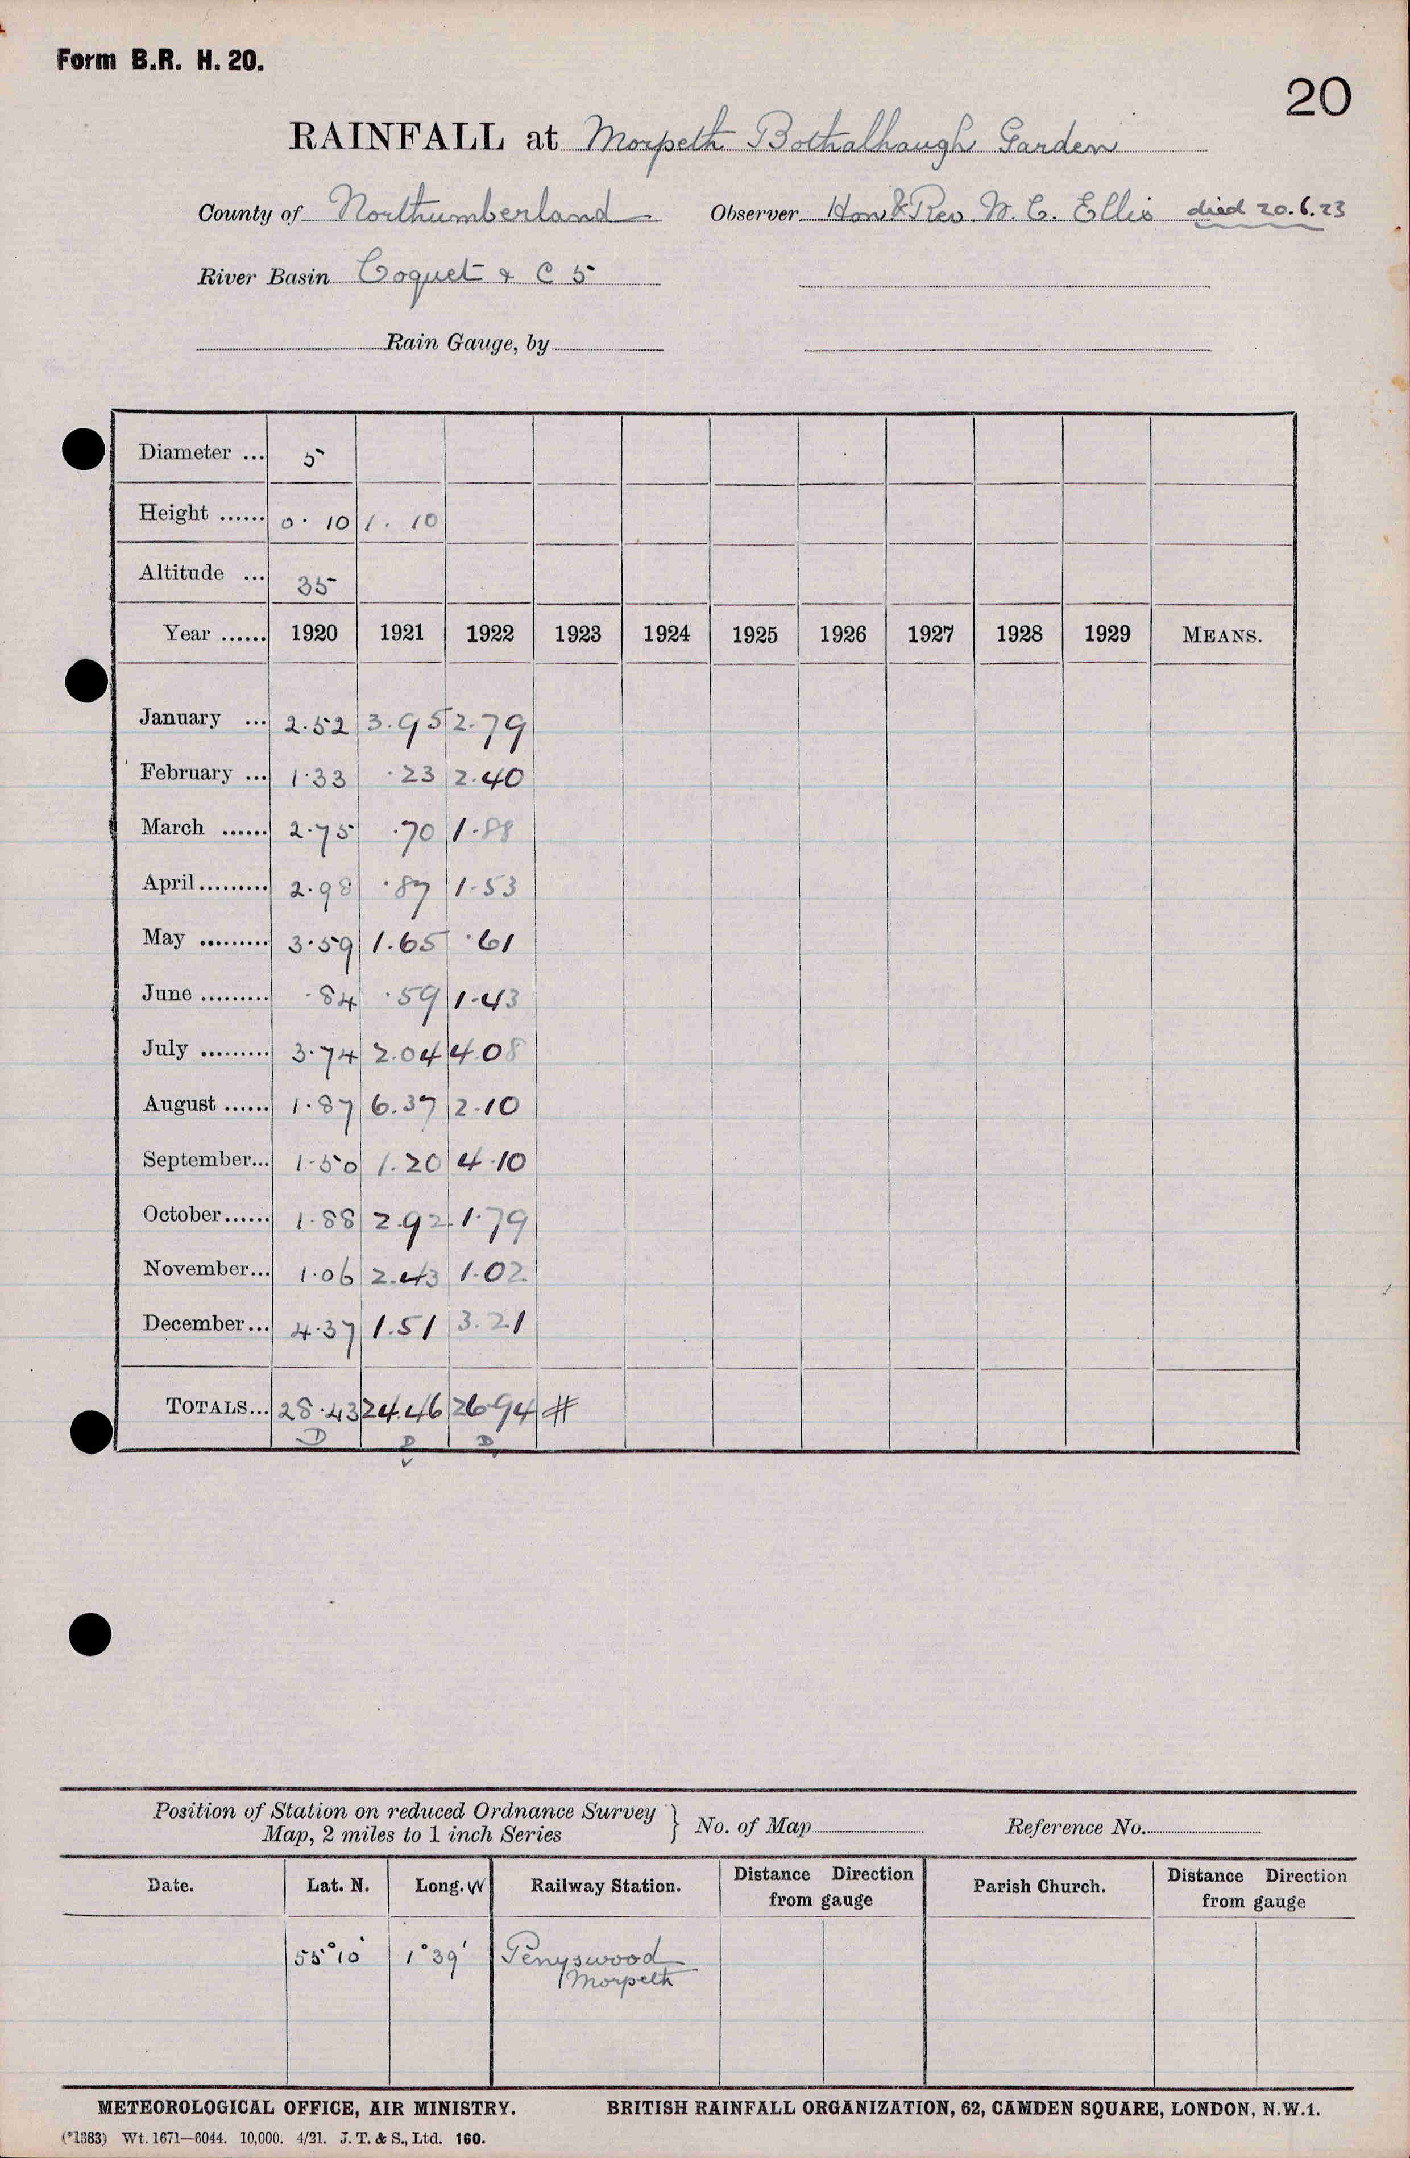 Form B.R. H. 20.
20
RAINFALL at Morpeth Bothalhaugh Garden
County of Northumberland Observer Hon & Rev W. C. Ellis died 20.6.23
River Basin Coquet & C 5
Rain Gauge, by
Diameter ... 5
Height ...... 0. 10 1. 10
Altitude ... 35
Year ...... 1920 1921 1922 1923 1924 1925 1926 1927 1928 1929 MEANS.
January ... 2.52 3.95 2.79
February ... 1.33 .23 2.40
March ...... 2.75 .70 1.88
April ......... 2.98 .87 1.53
May ......... 3.59 1.65 .61
June ......... .84 .59 1.43
July ......... 3.74 2.04 4.08
August ...... 1.87 6.37 2.10
September... 1.50 1.20 4.10
October...... 1.88 2.92 1.79
November... 1.06 2.43 1.02
December... 4.37 1.51 3.21
TOTALS... 28.43 24.46 26.94 #
D D D
Position of Station on reduced Ordnance Survey
Map, 2 miles to 1 inch Series } No. of Map Reference No.
Date. Lat. N. Long. W Railway Station. Distance Direction from gauge Parish Church. Distance Direction from gauge
55°10' 1°39' Penyswood
Morpeth
METEOROLOGICAL OFFICE, AIR MINISTRY. BRITISH RAINFALL ORGANIZATION, 62, CAMDEN SQUARE, LONDON, N.W.1.
(*1383) Wt. 1671—6044. 10,000. 4/21. J. T. & S., Ltd. 160.